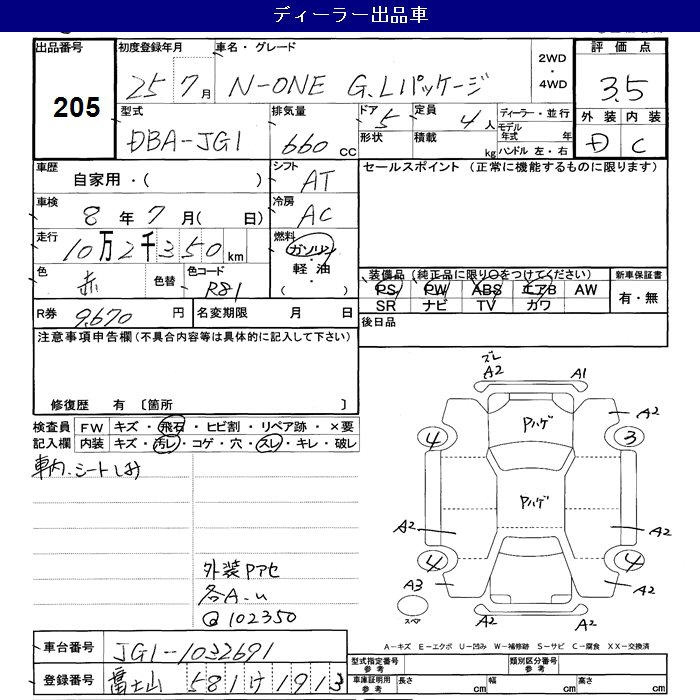 ディーラー出品車
出品番号 205
初度登録年月 25 7月
車名・グレード N-ONE G.Lパッケージ
2WD・4WD
評価点 3.5
外装 D 内装 C
型式 DBA-JG1
排気量 660 cc
ドア 5
形状
定員 4人
積載 kg
ディーラー・並行
モデル年式 年
ハンドル 左・右
車歴 自家用・( )
シフト AT
セールスポイント (正常に機能するものに限ります)
車検 8年 7月( 日)
冷房 AC
走行 10万2千350 km
燃料 ガソリン・軽油・( )
色 赤 色替 色コード R81
装備品 (純正品に限り○をつけてください)
PS PW ABS エアB AW
SR ナビ TV カワ
新車保証書 有・無
R券 9,670 円
名変期限 月 日
後日品
注意事項申告欄 (不具合内容等は具体的に記入して下さい)
修復歴 有 〔箇所 〕
検査員記入欄
FW キズ・飛石・ヒビ割・リペア跡・×要
内装 キズ・汚レ・コゲ・穴・スレ・キレ・破レ
車内.シートしみ
外装Pアセ
各A-u
@102350
ズレ
A2 A1
A2 Pハゲ
4 3
Pハゲ
A2 A2
4 4
A3 A2
スペア
A2 A2
A-キズ E-エクボ U-凹み W-補修跡 S-サビ C-腐食 XX-交換済
車台番号 JG1-1032691
登録番号 富士山 581 け 1913
型式指定番号 参考
類別区分番号 参考
車庫証明用 参考 長さ cm 幅 cm 高さ cm